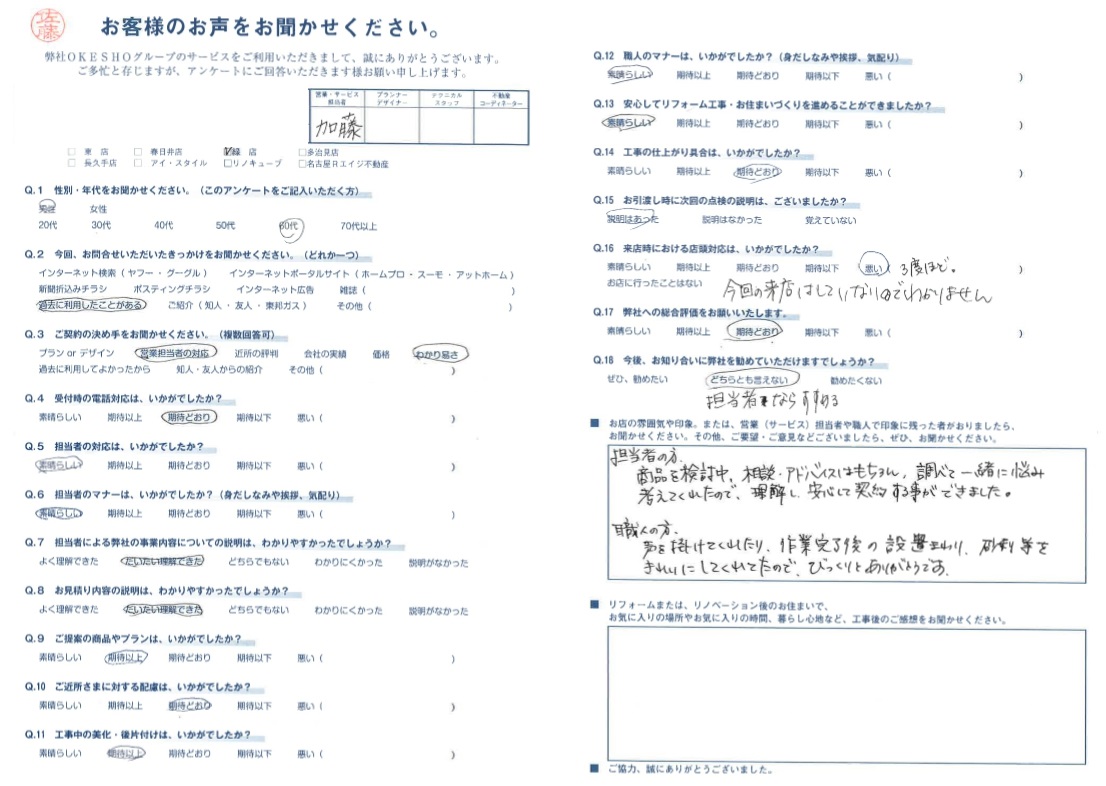 佐藤
お客様のお声をお聞かせください。
弊社OKESHOグループのサービスをご利用いただきまして、誠にありがとうございます。
ご多忙と存じますが、アンケートにご回答いただきます様お願い申し上げます。
営業・サービス担当者 プランナーデザイナー テクニカルスタッフ 不動産コーディネーター
加藤
□ 東 店 □ 春日井店 ☑緑 店 □多治見店
□ 長久手店 □ アイ・スタイル □リノキューブ □名古屋Rエイジ不動産
Q.1 性別・年代をお聞かせください。（このアンケートをご記入いただく方）
男性 女性
20代 30代 40代 50代 60代 70代以上
Q.2 今回、お問合せいただいたきっかけをお聞かせください。（どれか一つ）
インターネット検索（ ヤフー・グーグル ） インターネットポータルサイト（ ホームプロ・スーモ・アットホーム ）
新聞折込みチラシ ポスティングチラシ インターネット広告 雑誌（ ）
過去に利用したことがある ご紹介（ 知人・友人・東邦ガス ） その他（ ）
Q.3 ご契約の決め手をお聞かせください。（複数回答可）
プラン or デザイン 営業担当者の対応 近所の評判 会社の実績 価格 わかり易さ
過去に利用してよかったから 知人・友人からの紹介 その他（ ）
Q.4 受付時の電話対応は、いかがでしたか？
素晴らしい 期待以上 期待どおり 期待以下 悪い（ ）
Q.5 担当者の対応は、いかがでしたか？
素晴らしい 期待以上 期待どおり 期待以下 悪い（ ）
Q.6 担当者のマナーは、いかがでしたか？（身だしなみや挨拶、気配り）
素晴らしい 期待以上 期待どおり 期待以下 悪い（ ）
Q.7 担当者による弊社の事業内容についての説明は、わかりやすかったでしょうか？
よく理解できた だいたい理解できた どちらでもない わかりにくかった 説明がなかった
Q.8 お見積り内容の説明は、わかりやすかったでしょうか？
よく理解できた だいたい理解できた どちらでもない わかりにくかった 説明がなかった
Q.9 ご提案の商品やプランは、いかがでしたか？
素晴らしい 期待以上 期待どおり 期待以下 悪い（ ）
Q.10 ご近所さまに対する配慮は、いかがでしたか？
素晴らしい 期待以上 期待どおり 期待以下 悪い（ ）
Q.11 工事中の美化・後片付けは、いかがでしたか？
素晴らしい 期待以上 期待どおり 期待以下 悪い（ ）
Q.12 職人のマナーは、いかがでしたか？（身だしなみや挨拶、気配り）
素晴らしい 期待以上 期待どおり 期待以下 悪い（ ）
Q.13 安心してリフォーム工事・お住まいづくりを進めることができましたか？
素晴らしい 期待以上 期待どおり 期待以下 悪い（ ）
Q.14 工事の仕上がり具合は、いかがでしたか？
素晴らしい 期待以上 期待どおり 期待以下 悪い（ ）
Q.15 お引渡し時に次回の点検の説明は、ございましたか？
説明はあった 説明はなかった 覚えていない
Q.16 来店時における店頭対応は、いかがでしたか？
素晴らしい 期待以上 期待どおり 期待以下 悪い（ 3度ほど。 ）
お店に行ったことはない 今回の来店はしていないのでわかりません
Q.17 弊社への総合評価をお願いいたします。
素晴らしい 期待以上 期待どおり 期待以下 悪い（ ）
Q.18 今後、お知り合いに弊社を勧めていただけますでしょうか？
ぜひ、勧めたい どちらとも言えない 勧めたくない
担当者ならすすめる
■ お店の雰囲気や印象。または、営業（サービス）担当者や職人で印象に残った者がおりましたら、
お聞かせください。その他、ご要望・ご意見などございましたら、ぜひ、お聞かせください。
担当者の方.
商品を検討中、相談・アドバイスはもちろん、調べて一緒に悩み
考えてくれたので、理解し、安心して契約する事ができました。
職人の方.
声を掛けてくれたり、作業完了後の設置まわり、砂利等を
きれいにしてくれてたので、びっくりとありがとうです。
■ リフォームまたは、リノベーション後のお住まいで、
お気に入りの場所やお気に入りの時間、暮らし心地など、工事後のご感想をお聞かせください。
■ ご協力、誠にありがとうございました。